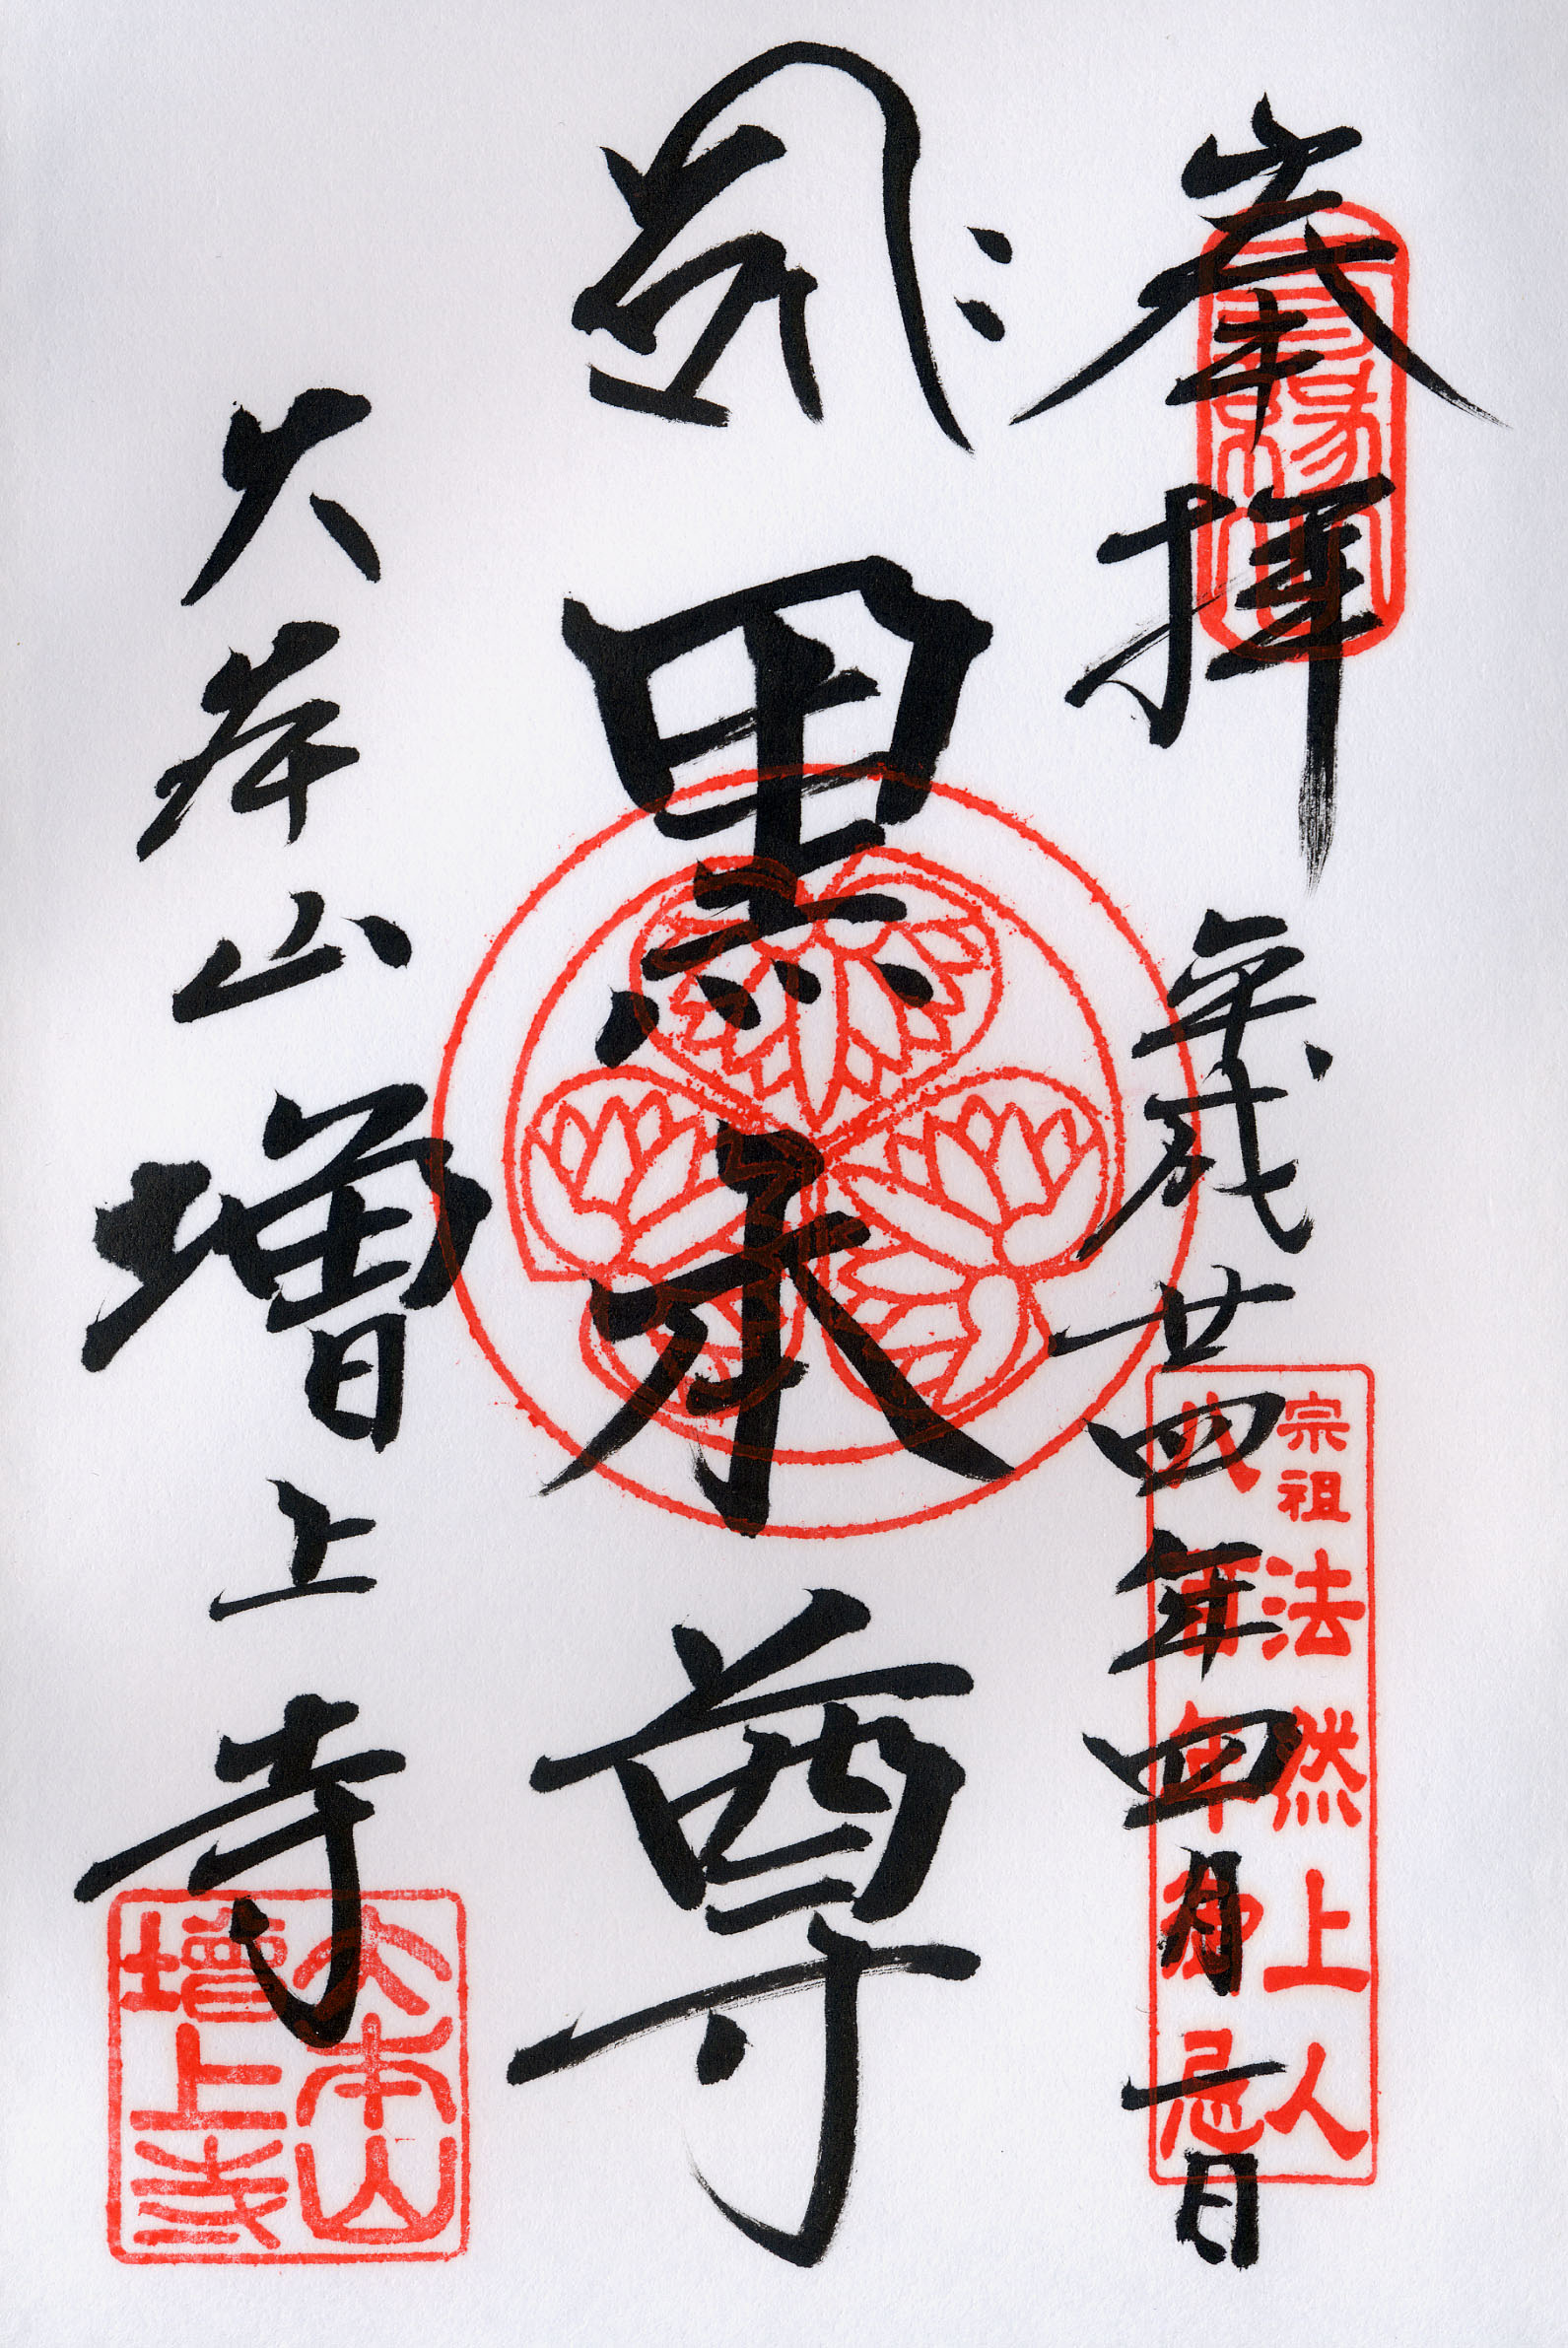 奉拝
平成廿四年四月一日
三縁山
宗祖法然上人
八百年御忌
黒本尊
大本山増上寺
大本山
増上寺